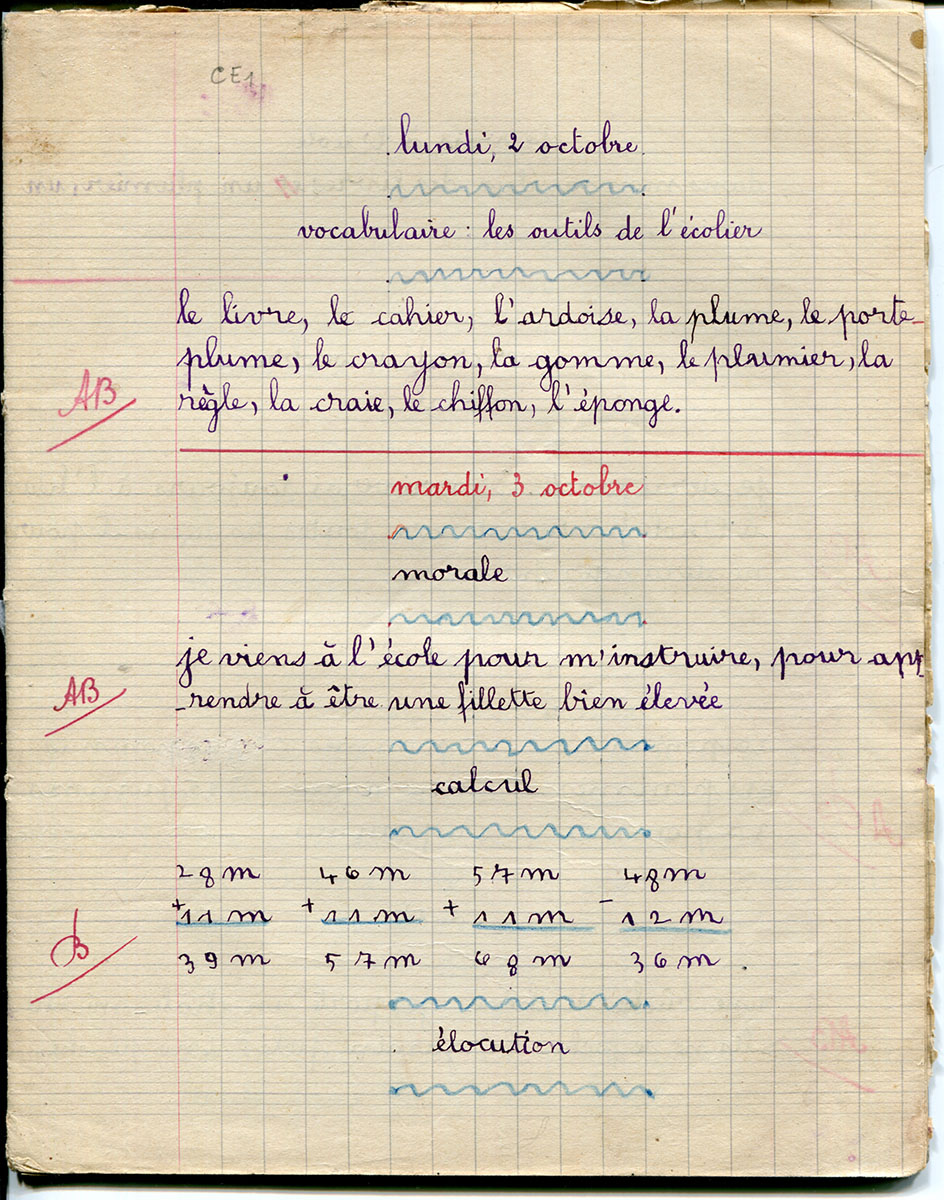 CE1
lundi, 2 octobre
vocabulaire : les outils de l'écolier
le livre, le cahier, l'ardoise, la plume, le porte-
plume, le crayon, la gomme, le plumier, la
AB
règle, la craie, le chiffon, l'éponge.
mardi, 3 octobre
morale
je viens à l'école pour m'instruire, pour app-
AB
-rendre à être une fillette bien élevée
calcul
28m 46m 57m 48m
+11m +11m +11m -12m
B
39m 57m 68m 36m
élocution